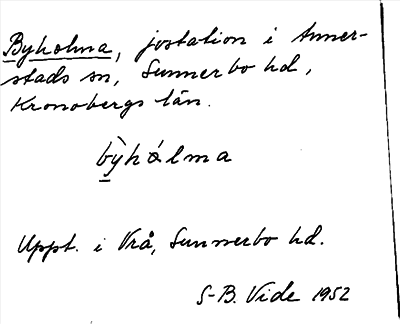 Byholma, jvstation i Anner-
stads sn, Sunnerbo hd,
Kronobergs län.
bẏ̀hólma
Uppt. i Vrå, Sunnerbo hd.
S-B. Vide 1952